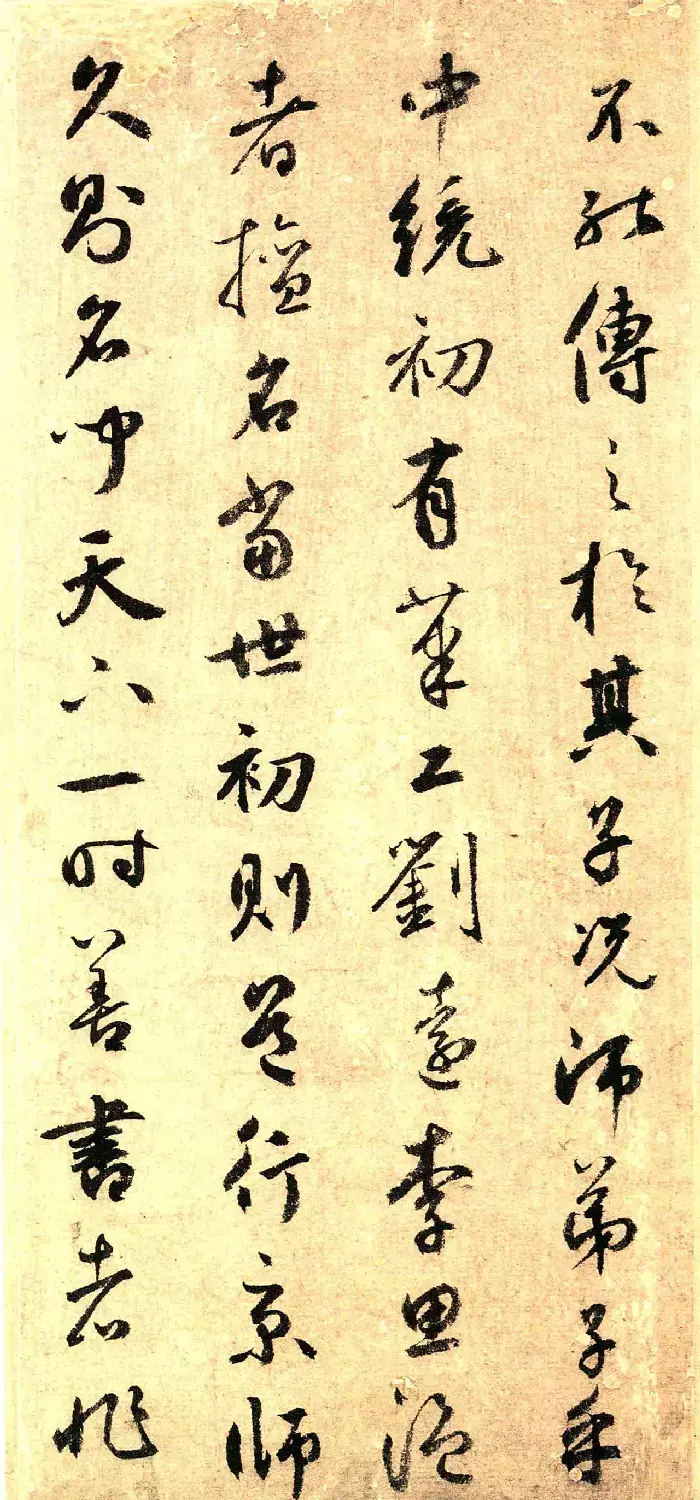 不能傳之於其子況師弟子乎
中統初有筆工劉遠李思溫
者擅名當世初則盛行京師
久則名聞天下一時善書者非